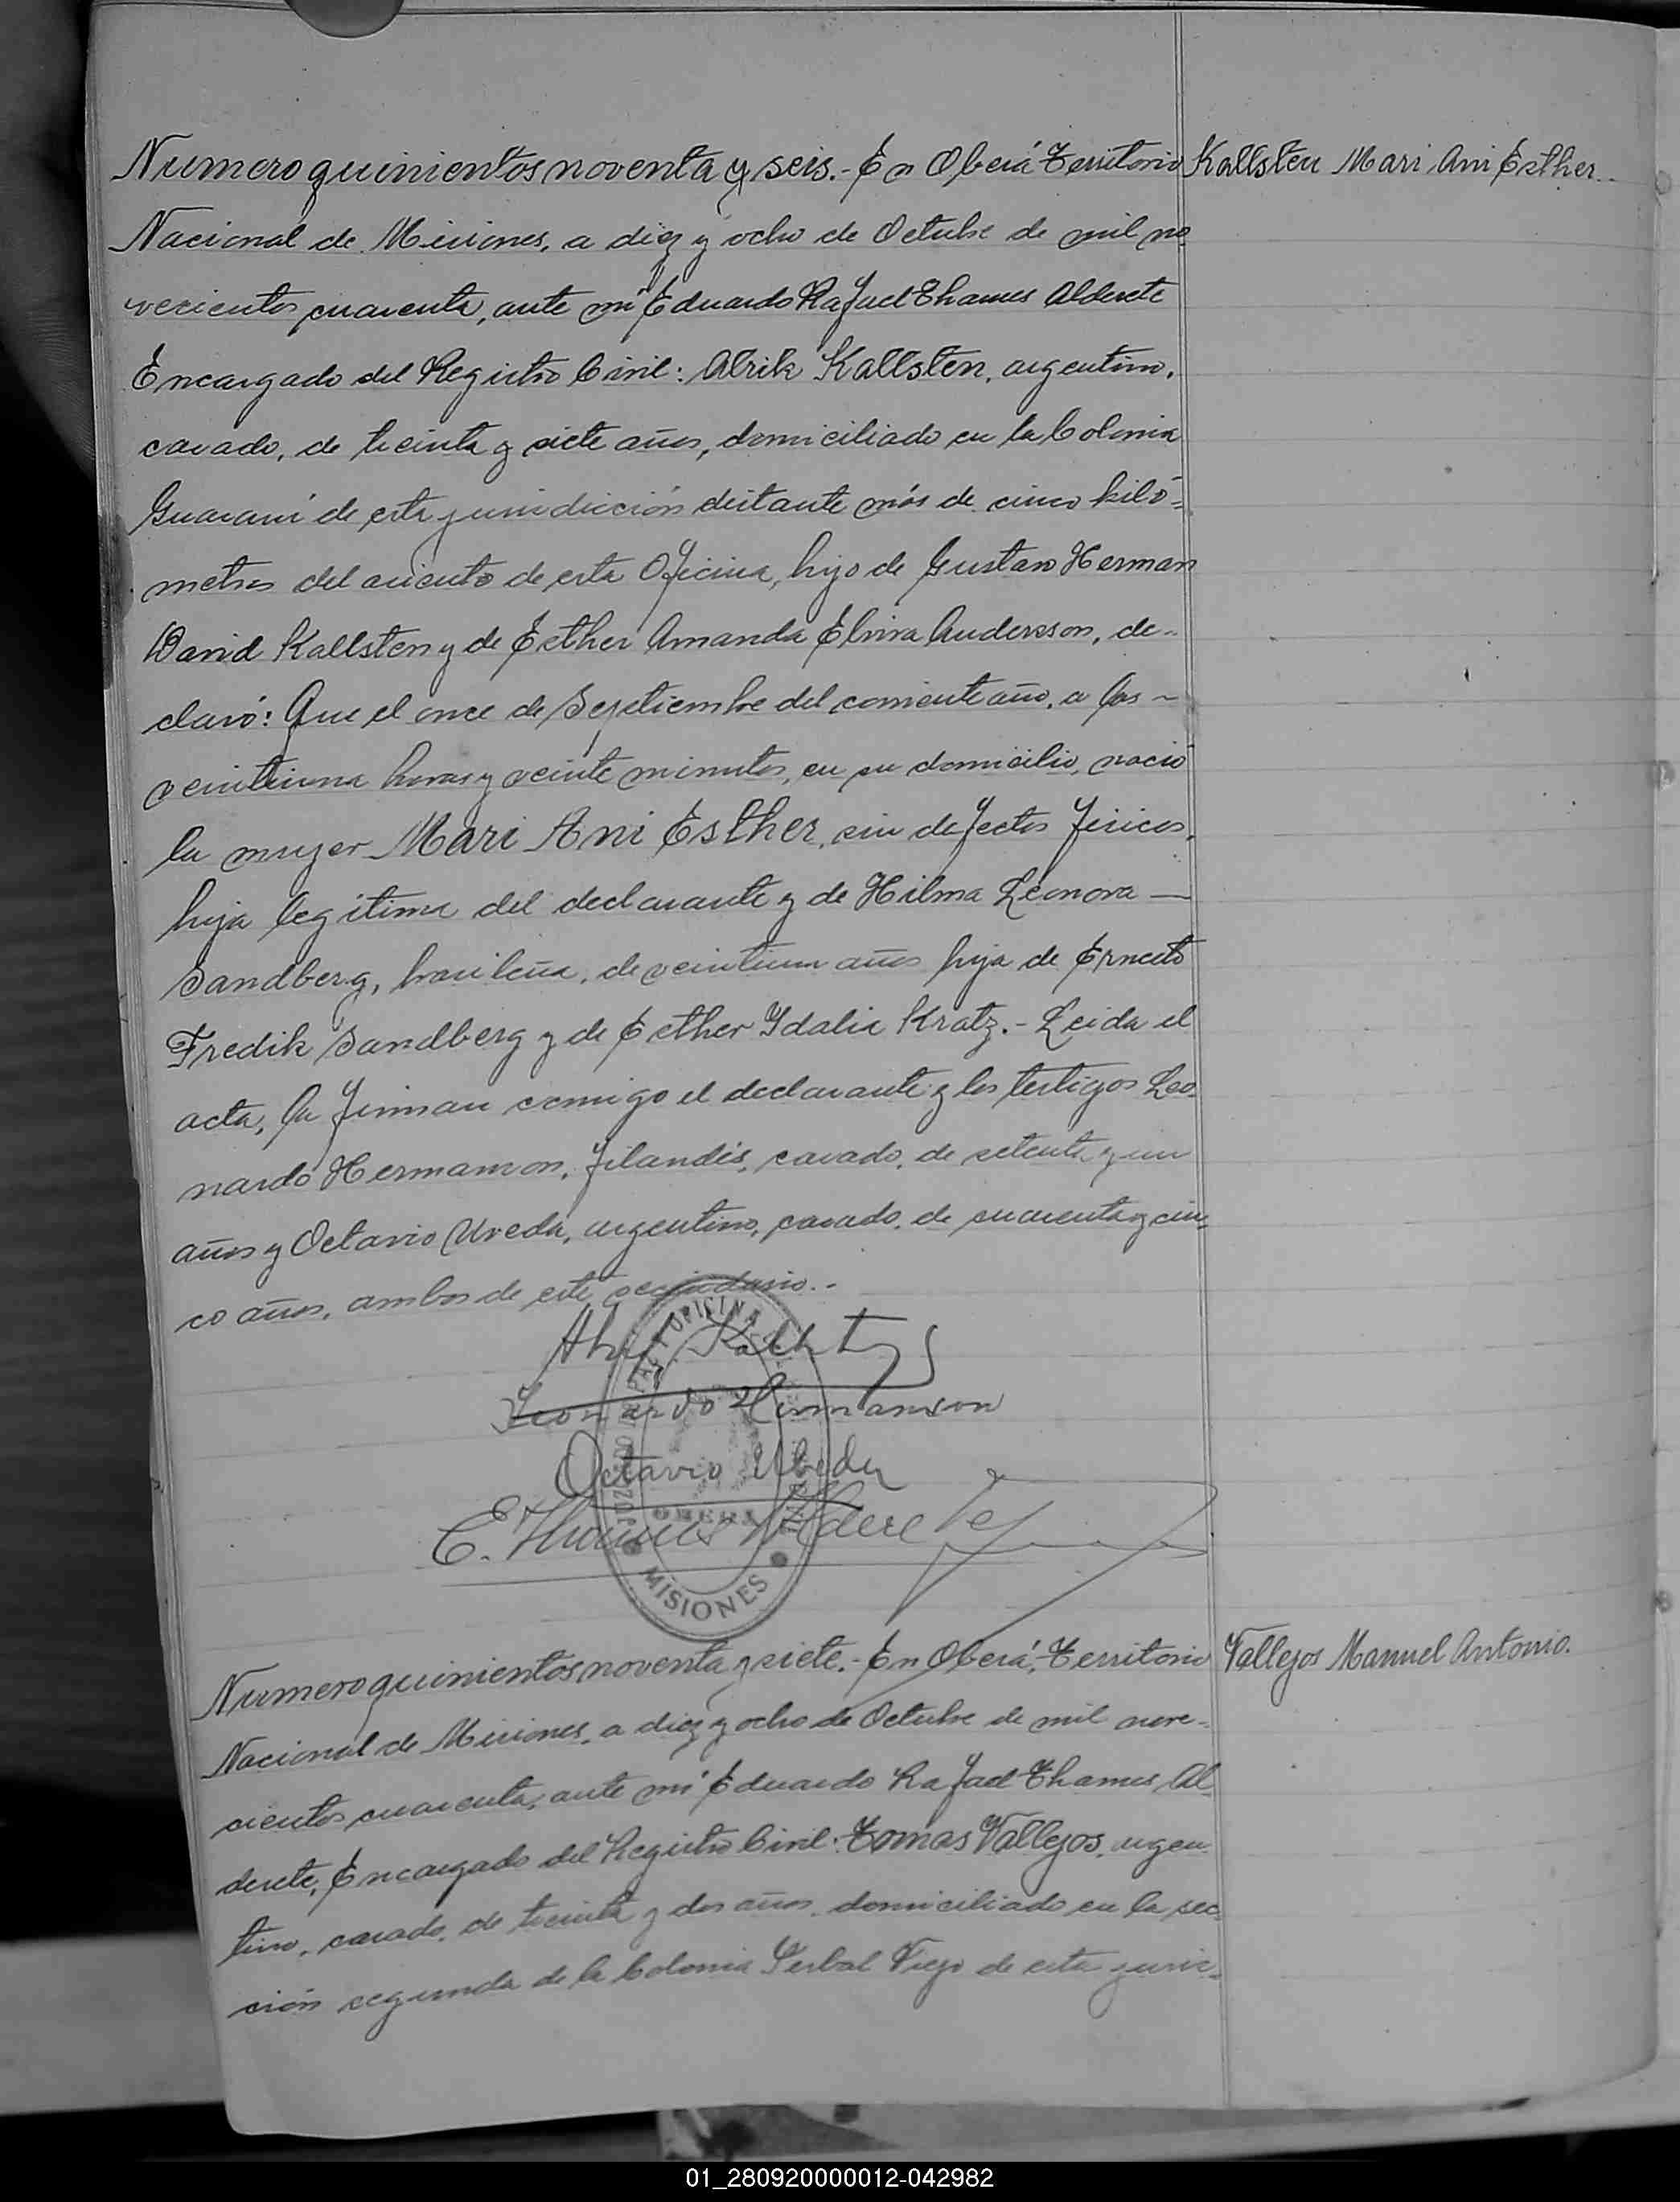 Numero quinientos noventa y seis.- En Oberá Territorio
Kallsten Mari Ani Esther.
Nacional de Misiones, a diez y ocho de Octubre de mil no
vecientos cuarenta, ante mi Eduardo Rafael Thames Alderete
Encargado del Registro Civil: Alrik Kallsten, argentino,
casado, de treinta y siete años, domiciliado en la Colonia
Guaraní de esta jurisdicción distante más de cinco kiló=
metros del asiento de esta Oficina, hijo de Gustavo Herman
David Kallsten y de Esther Amanda Elvira Andersson, de-
claró: Que el once de Septiembre del corriente año, a las ~
veintiuna horas y veinte minutos, en su domicilio, nació
la mujer Mari Ani Esther, sin defectos físicos,
hija legítima del declarante y de Hilma Leonora —
Sandberg, brasileña, de veintiun años hija de Ernesto
Fredik Sandberg y de Esther Idalia Kratz.- Leida el
acta, la firman conmigo el declarante y los testigos Leo-
nardo Hermanson, filandés, casado, de setenta y un
años y Octavio Uveda, argentino, casado, de cuarenta y cin-
co años, ambos de este vecindario.-
Kallsten
Leonardo Hermanson
Octavio Ubeda
E. Thames Alderete
OFICINA
OBERA
MISIONES
Numero quinientos noventa y siete.- En Oberá, Territorio
Vallejos Manuel Antonio.
Nacional de Misiones, a diez y ocho de Octubre de mil nove-
cientos cuarenta, ante mi Eduardo Rafael Thames Al
derete, Encargado del Registro Civil: Tomas Vallejos, argen
tino, casado, de treinta y dos años, domiciliado en la sec
ción segunda de la Colonia Yerbal Viejo de esta juris-
01_280920000012-042982